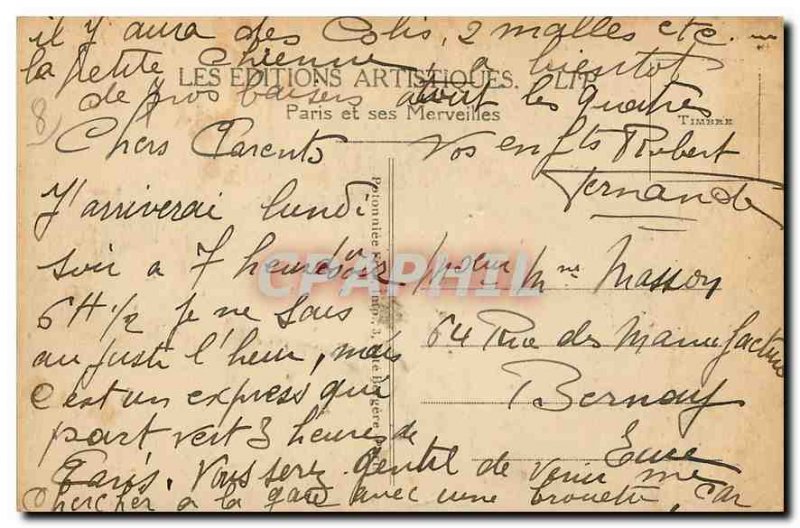 il y aura des Colis, 2 malles etc.
la petite Chienne, a bientot
LES EDITIONS ARTISTIQUES. LIP
de gros baisers les quatres
Paris et ses Merveilles
TIMBRE
8)
Chers Parents
Vos enfts Robert
Fernande
J'arriverai lundi
soir a 7 heures ou
6H 1/2 je ne sais
au juste l'heur, mais
C'est un express qui
part vert 3 heures de
Paris. Vous serez gentil de venir me
chercher a la gare avec une brouette, car
CPAPHIL
pour Mme Masson
64 Rue des Manufacture
Bernay
Eure